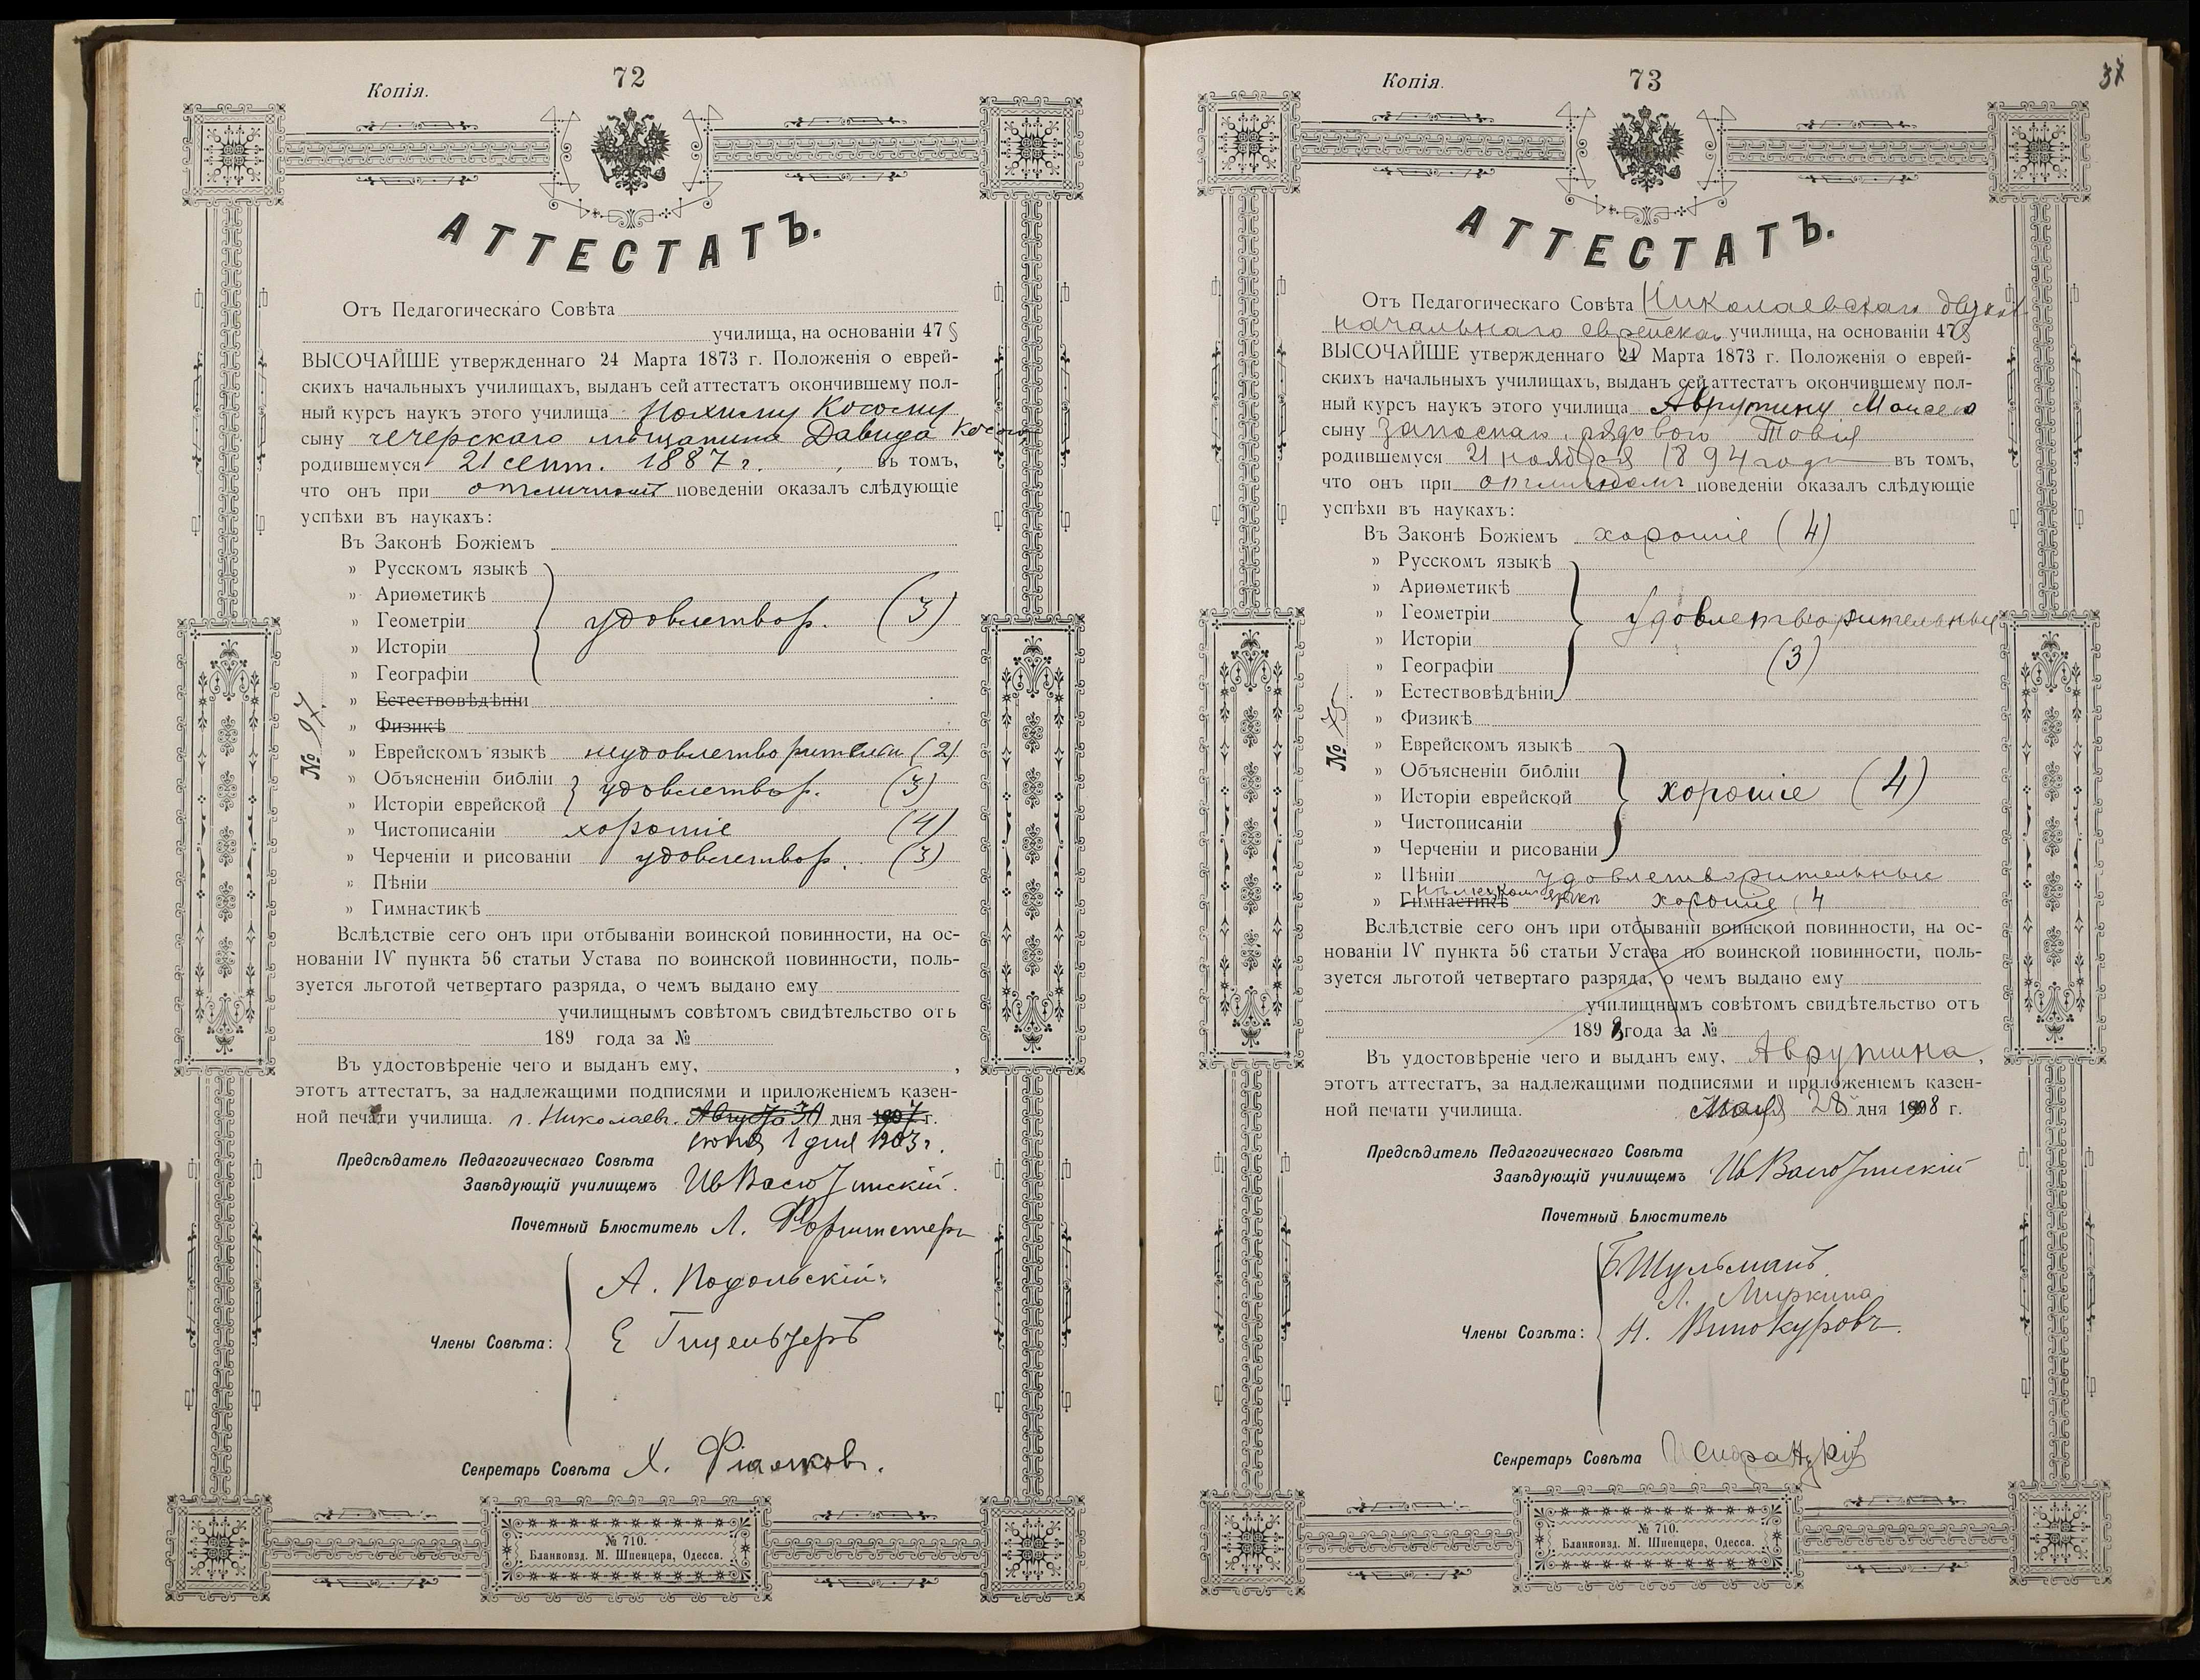 Копія.
72
АТТЕСТАТЪ.
Отъ Педагогическаго Совѣта
училища, на основаніи 47 §
ВЫСОЧАЙШЕ утвержденнаго 24 Марта 1873 г. Положенія о еврей-
скихъ начальныхъ училищахъ, выданъ сей аттестатъ окончившему пол-
ный курсъ наукъ этого училища Нохиму Косому
сыну чечерскаго мѣщанина Давида Косого
родившемуся 21 сент. 1887 г. въ томъ,
что онъ при отличномъ поведеніи оказалъ слѣдующіе
успѣхи въ наукахъ:
Въ Законѣ Божіемъ
» Русскомъ языкѣ
» Ариѳметикѣ
» Геометріи удовлетвор. (3)
» Исторіи
» Географіи
» Естествовѣдѣніи
» Физикѣ
№ 97.
» Еврейскомъ языкѣ неудовлетворительн (2)
» Объясненіи библіи удовлетвор. (3)
» Исторіи еврейской
» Чистописаніи хорошіе (4)
» Черченіи и рисованіи удовлетвор. (3)
» Пѣніи
» Гимнастикѣ
Вслѣдствіе сего онъ при отбываніи воинской повинности, на ос-
нованіи IV пункта 56 статьи Устава по воинской повинности, поль-
зуется льготой четвертаго разряда, о чемъ выдано ему
училищнымъ совѣтомъ свидѣтельство отъ
189 года за №
Въ удостовѣреніе чего и выданъ ему,
этотъ аттестатъ, за надлежащими подписями и приложеніемъ казен-
ной печати училища. г. Николаевъ. Августа 31 дня 1897 г.
іюня 1 дня 1903 г.
Предсѣдатель Педагогическаго Совѣта
Завѣдующій училищемъ ИвВасютинскій.
Почетный Блюститель Л.
А. Подольскій
Члены Совѣта: Е
Секретарь Совѣта Х. Фіалковъ.
№ 710.
Бланкоизд. М. Шпенцера, Одесса.
Копія.
73
37
АТТЕСТАТЪ.
Отъ Педагогическаго Совѣта Николаевскаго двухкл
начальнаго еврейскаго училища, на основаніи 47 §
ВЫСОЧАЙШЕ утвержденнаго 24 Марта 1873 г. Положенія о еврей-
скихъ начальныхъ училищахъ, выданъ сей аттестатъ окончившему пол-
ный курсъ наукъ этого училища Аврутину Моисею
сыну запаснаго рядового Товія
родившемуся 21 ноября 1894 года въ томъ,
что онъ при отличномъ поведеніи оказалъ слѣдующіе
успѣхи въ наукахъ:
Въ Законѣ Божіемъ хорошіе (4)
» Русскомъ языкѣ
» Ариѳметикѣ
» Геометріи удовлетворительные
» Исторіи
» Географіи (3)
» Естествовѣдѣніи
№ 75.
» Физикѣ
» Еврейскомъ языкѣ
» Объясненіи библіи
» Исторіи еврейской хорошіе (4)
» Чистописаніи
» Черченіи и рисованіи
» Пѣніи удовлетворительные
нѣмецкомъ
» Гимнастикѣ язык хорошіе (4
Вслѣдствіе сего онъ при отбываніи воинской повинности, на ос-
нованіи IV пункта 56 статьи Устава по воинской повинности, поль-
зуется льготой четвертаго разряда, о чемъ выдано ему
училищнымъ совѣтомъ свидѣтельство отъ
1898 года за №
Въ удостовѣреніе чего и выданъ ему, Аврутина,
этотъ аттестатъ, за надлежащими подписями и приложеніемъ казен-
ной печати училища. Мая 28 дня 1908 г.
Предсѣдатель Педагогическаго Совѣта
Завѣдующій училищемъ ИвВасютинскій
Почетный Блюститель
Б. Шульманъ
Л. Миркина
Члены Совѣта: Н. Винокуровъ.
Секретарь Совѣта
№ 710.
Бланкоизд. М. Шпенцера, Одесса.